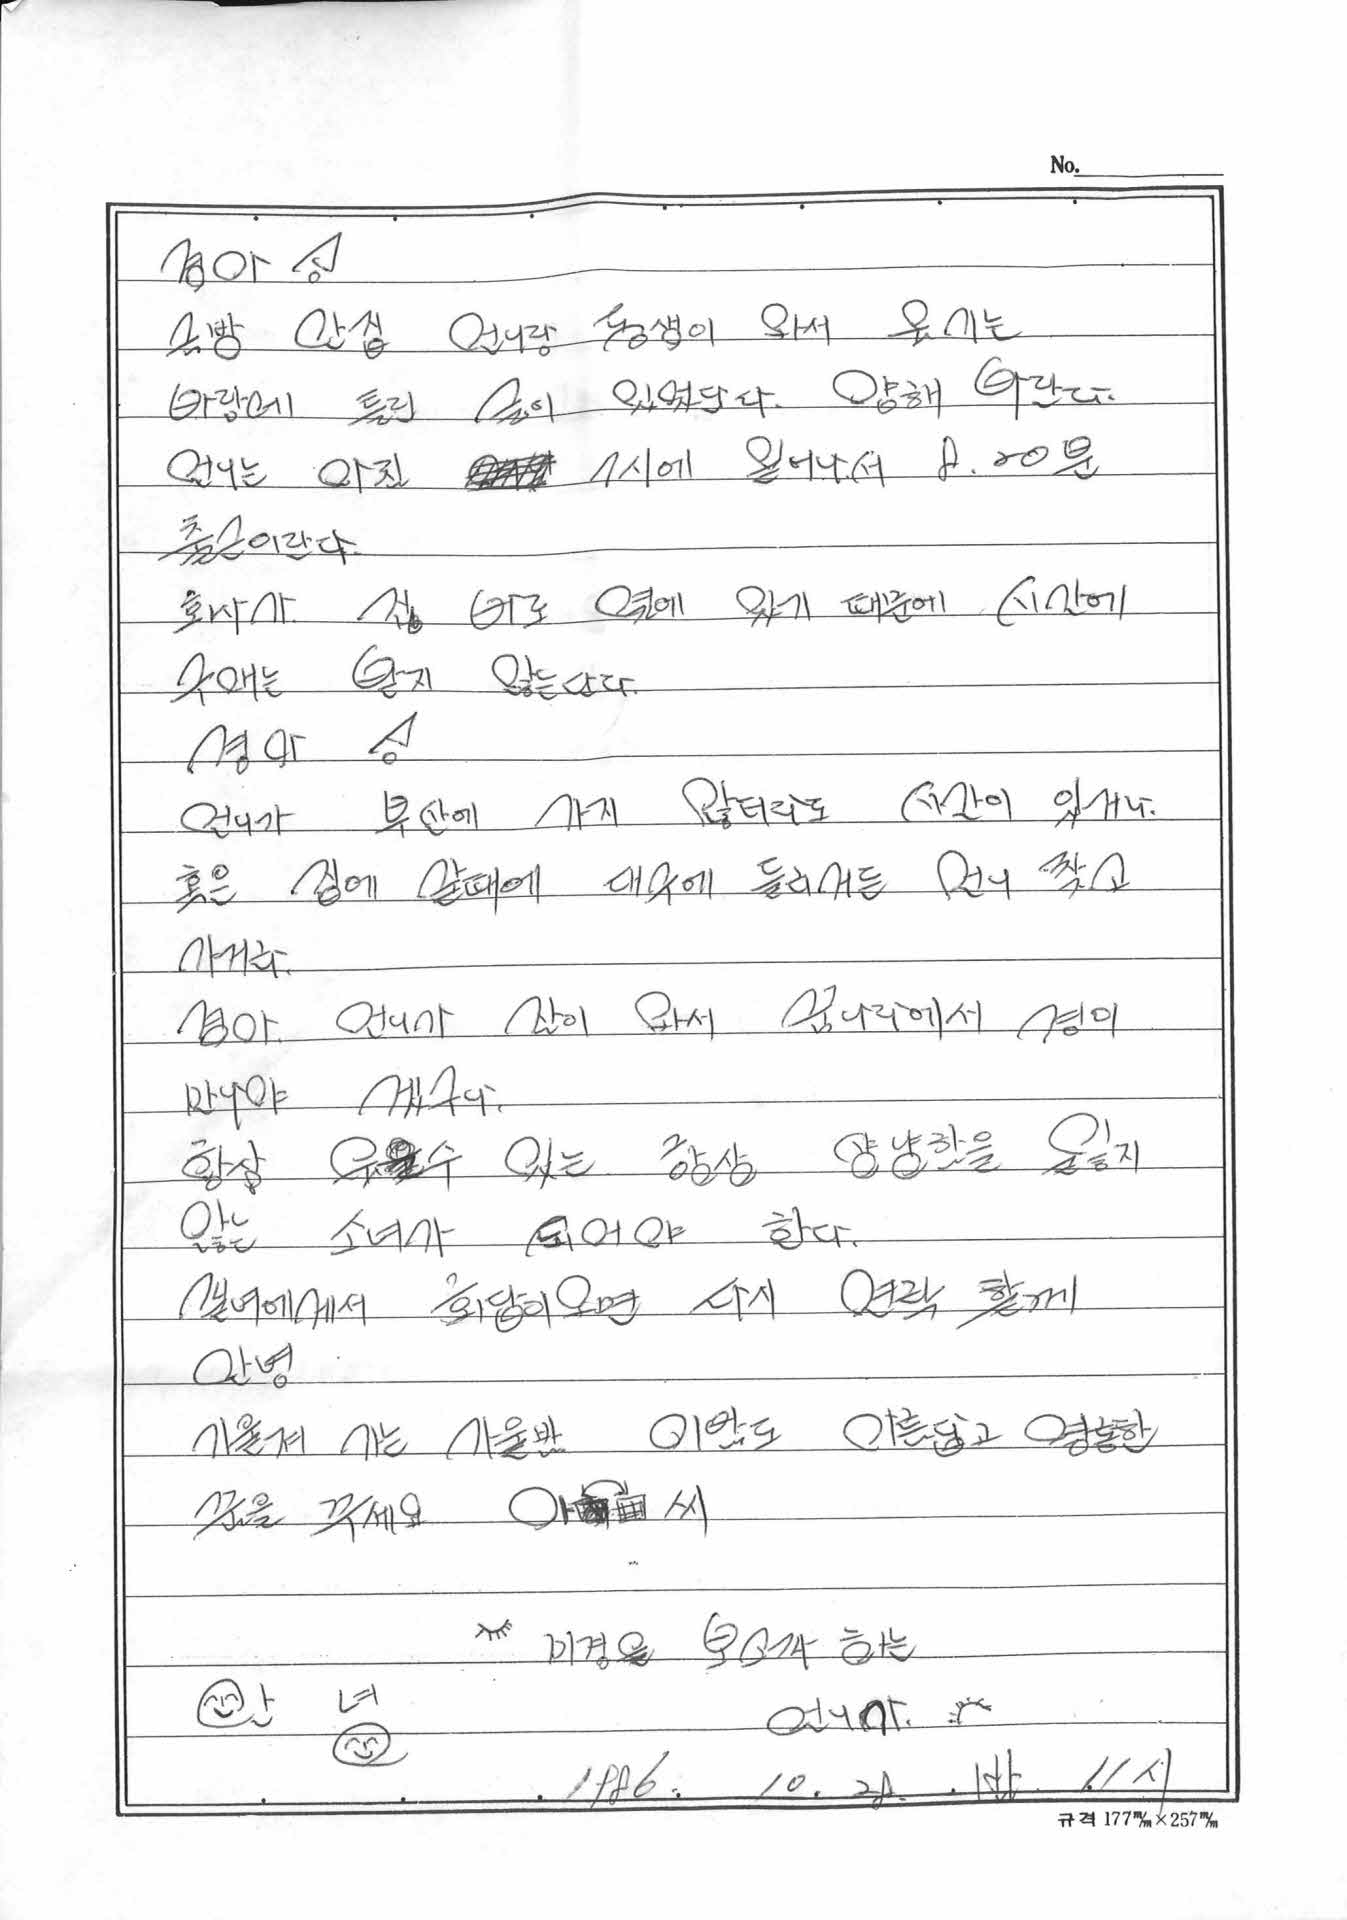 No.
경아
금방 안집 언니랑 동생이 와서 웃기는
바람에 틀린 글이 있었단다. 양해 바란다.
언니는 아침 7시에 일어나서 8.20분
출근이란다.
회사가 집 바로 옆에 있기 때문에 시간에
구애는 받지 않는단다.
경아
언니가 부산에 가지 않더라도 시간이 있거나.
혹은 집에 갈때에 대구에 들리거든 언니 찾고
가거라.
경아. 언니가 잠이 와서 꿈나라에서 경이
만나야 겠구나.
항상 웃을수 있는 항상 상냥함을 잃지
않는 소녀가 되어야 한다.
소녀에게서 회답이오면 다시 연락 할께
안녕
가을져 가는 가을밤 이밤도 아름답고 영롱한
꿈을 꾸세요 씨
미경을 보고파 하는
안 녕 언니가.
1986. 10. 28. 밤 11시
규격 177㎜×257㎜